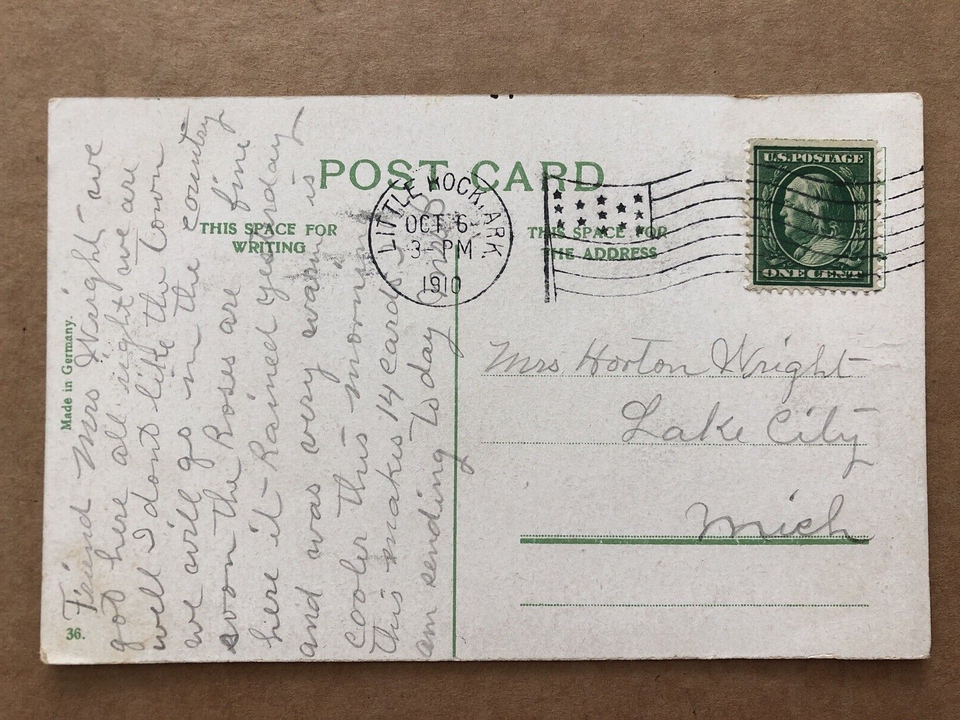 POST CARD
THIS SPACE FOR
WRITING
THIS SPACE FOR
THE ADDRESS
LITTLE ROCK, ARK.
OCT 6-
3-PM
1910
U.S. POSTAGE
ONE CENT
Made in Germany.
36.
Friend Mrs Wright - we
got here all right we are
well I dont like the town
we will go in the country
soon the Roses are fine
here it - Rained yesterday
and was very warm is
cooler this morning
this makes 14 cards I
am sending to day
Mrs Horton Wright
Lake City
Mich